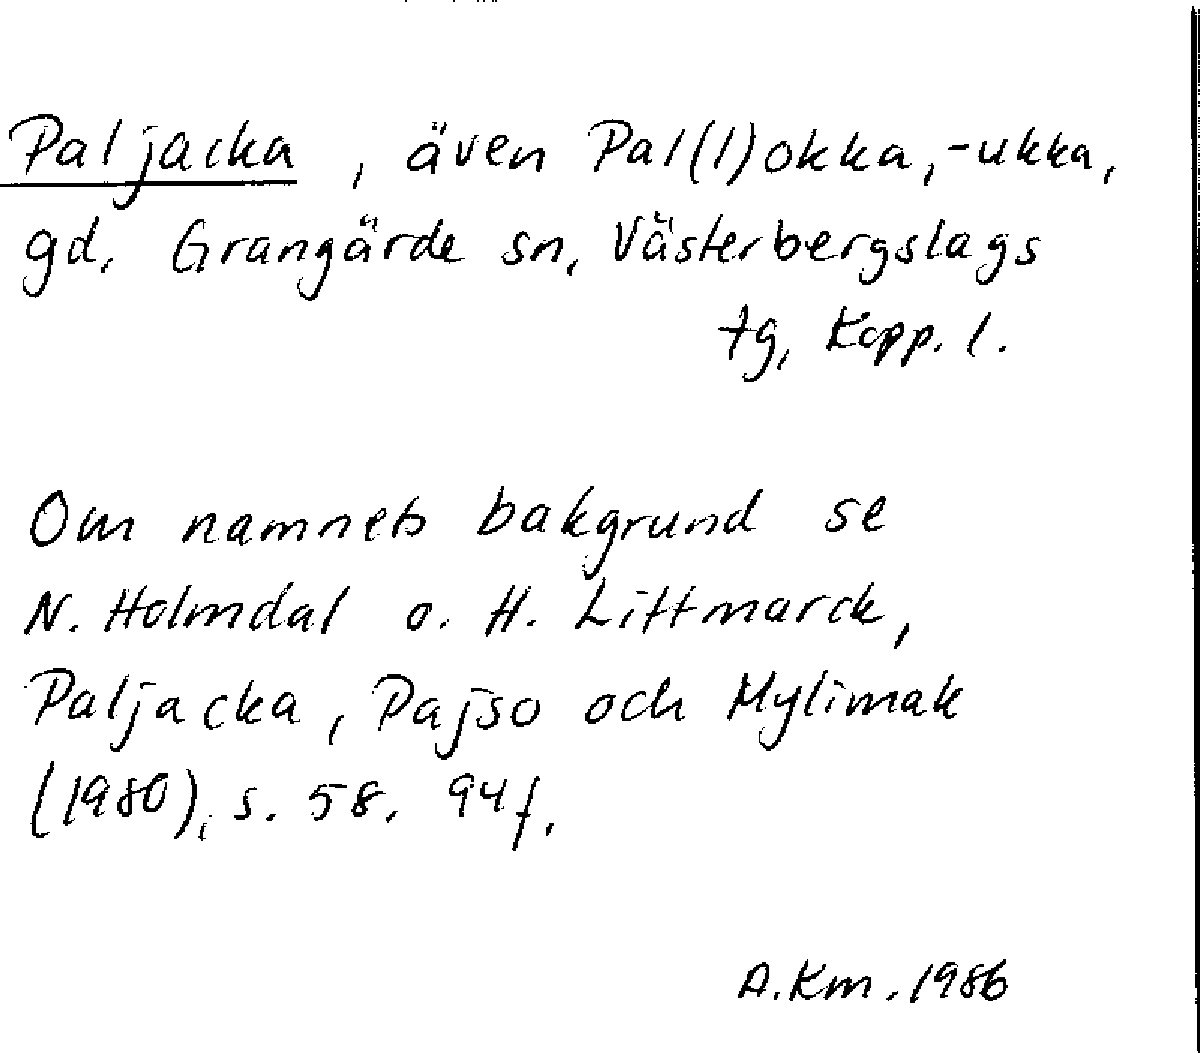 Paljacka, även Pal(l)okka, -ukka,
gd. Grangärde sn, Västerbergslags
tg, Kopp. l.
Om namnets bakgrund se
N. Holmdal o. H. Littmarck,
Paljacka, Pajso och Mylimak
(1980), s. 58. 94f.
A.Km. 1986